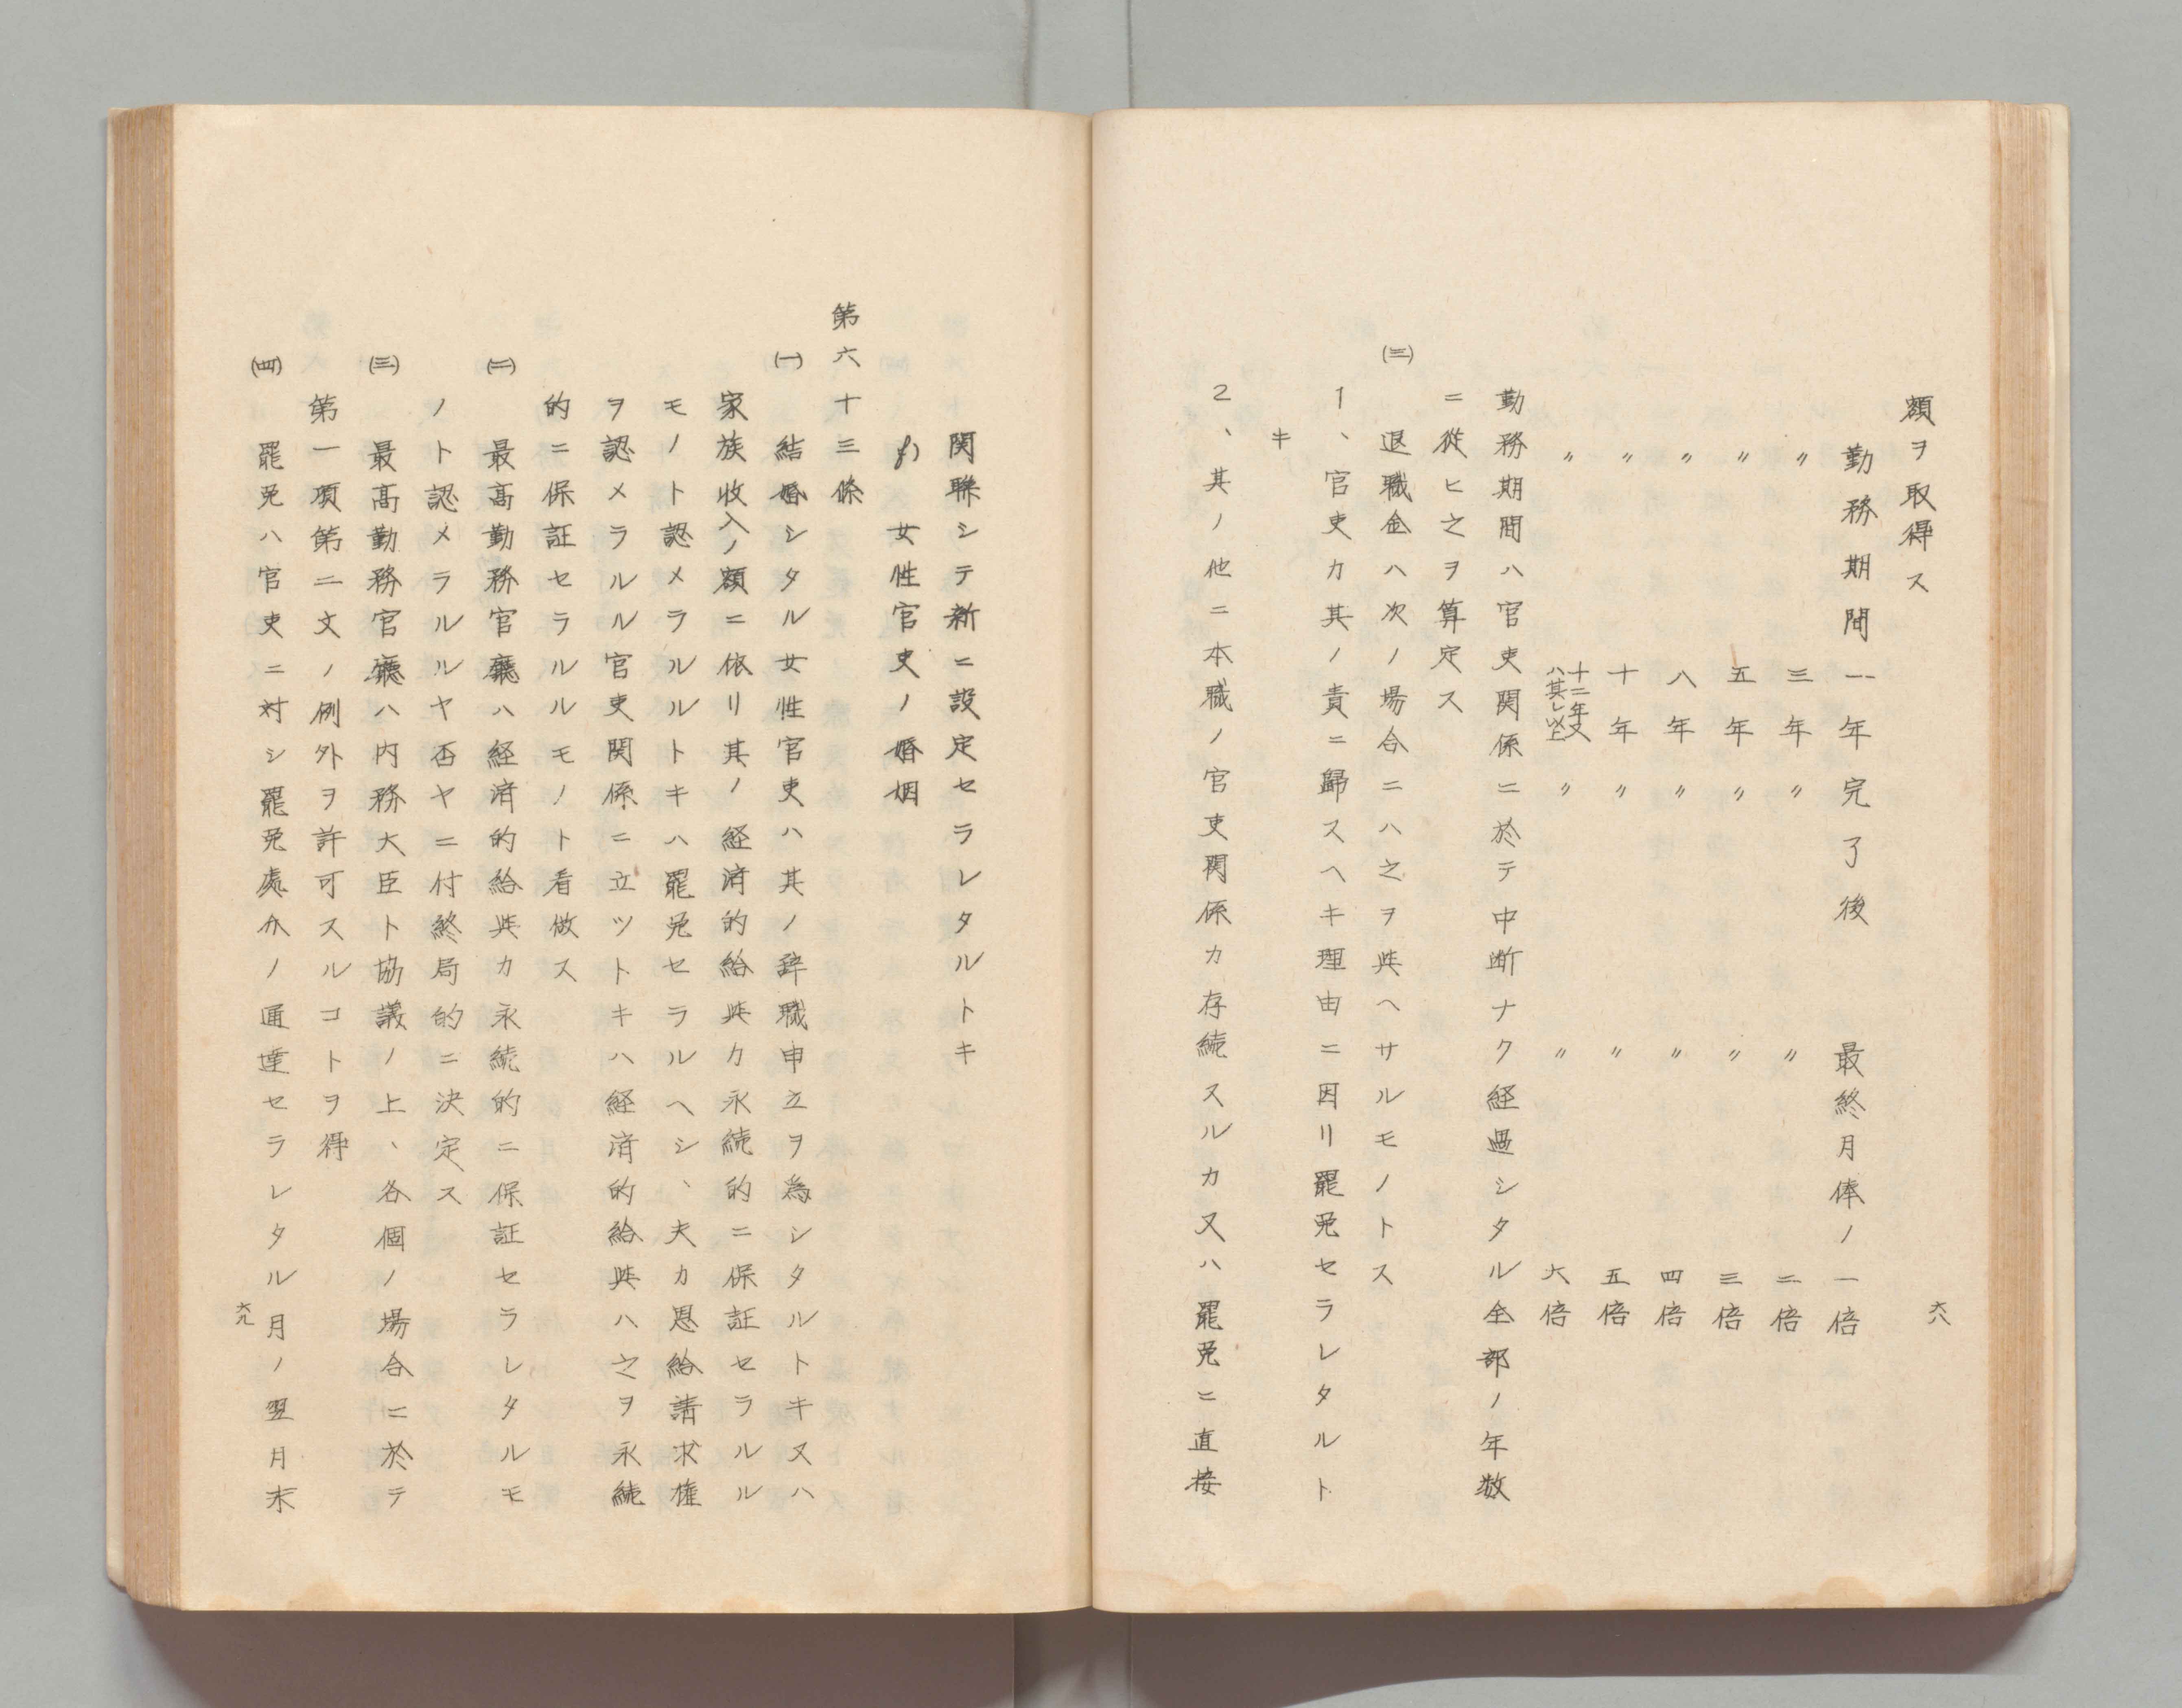 額ヲ取得ス
勤務期間一年完了後　最終月俸ノ一倍
〃　三年〃　〃　二倍
〃　五年〃　〃　三倍
〃　八年〃　〃　四倍
〃　十年〃　〃　五倍
〃　十二年又ハ其レ以上〃　〃　六倍
勤務期間ハ官吏関係ニ於テ中断ナク経過シタル全部ノ年数
ニ従ヒ之ヲ算定ス
(三)　退職金ハ次ノ場合ニハ之ヲ与ヘサルモノトス
1、官吏カ其ノ責ニ歸スヘキ理由ニ因リ罷免セラレタルト
キ
2、其ノ他ニ本職ノ官吏関係カ存続スルカ又ハ罷免ニ直接
六八
関聯シテ新ニ設定セラレタルトキ
f)　女性官吏ノ婚姻
第六十三條
(一)　結婚シタル女性官吏ハ其ノ辞職申立ヲ為シタルトキ又ハ
家族收入ノ額ニ依リ其ノ経済的給与カ永続的ニ保証セラルル
モノト認メラルルトキハ罷免セラルヘシ、夫カ恩給請求権
ヲ認メラルル官吏関係ニ立ツトキハ経済的給与ハ之ヲ永続
的ニ保証セラルルモノト看做ス
(二)　最高勤務官廳ハ経済的給与カ永続的ニ保証セラレタルモ
ノト認メラルルヤ否ヤニ付終局的ニ決定ス
(三)　最高勤務官廳ハ内務大臣ト協議ノ上、各個ノ場合ニ於テ
第一項第二文ノ例外ヲ許可スルコトヲ得
(四)　罷免ハ官吏ニ対シ罷免處分ノ通達セラレタル月ノ翌月末
六九